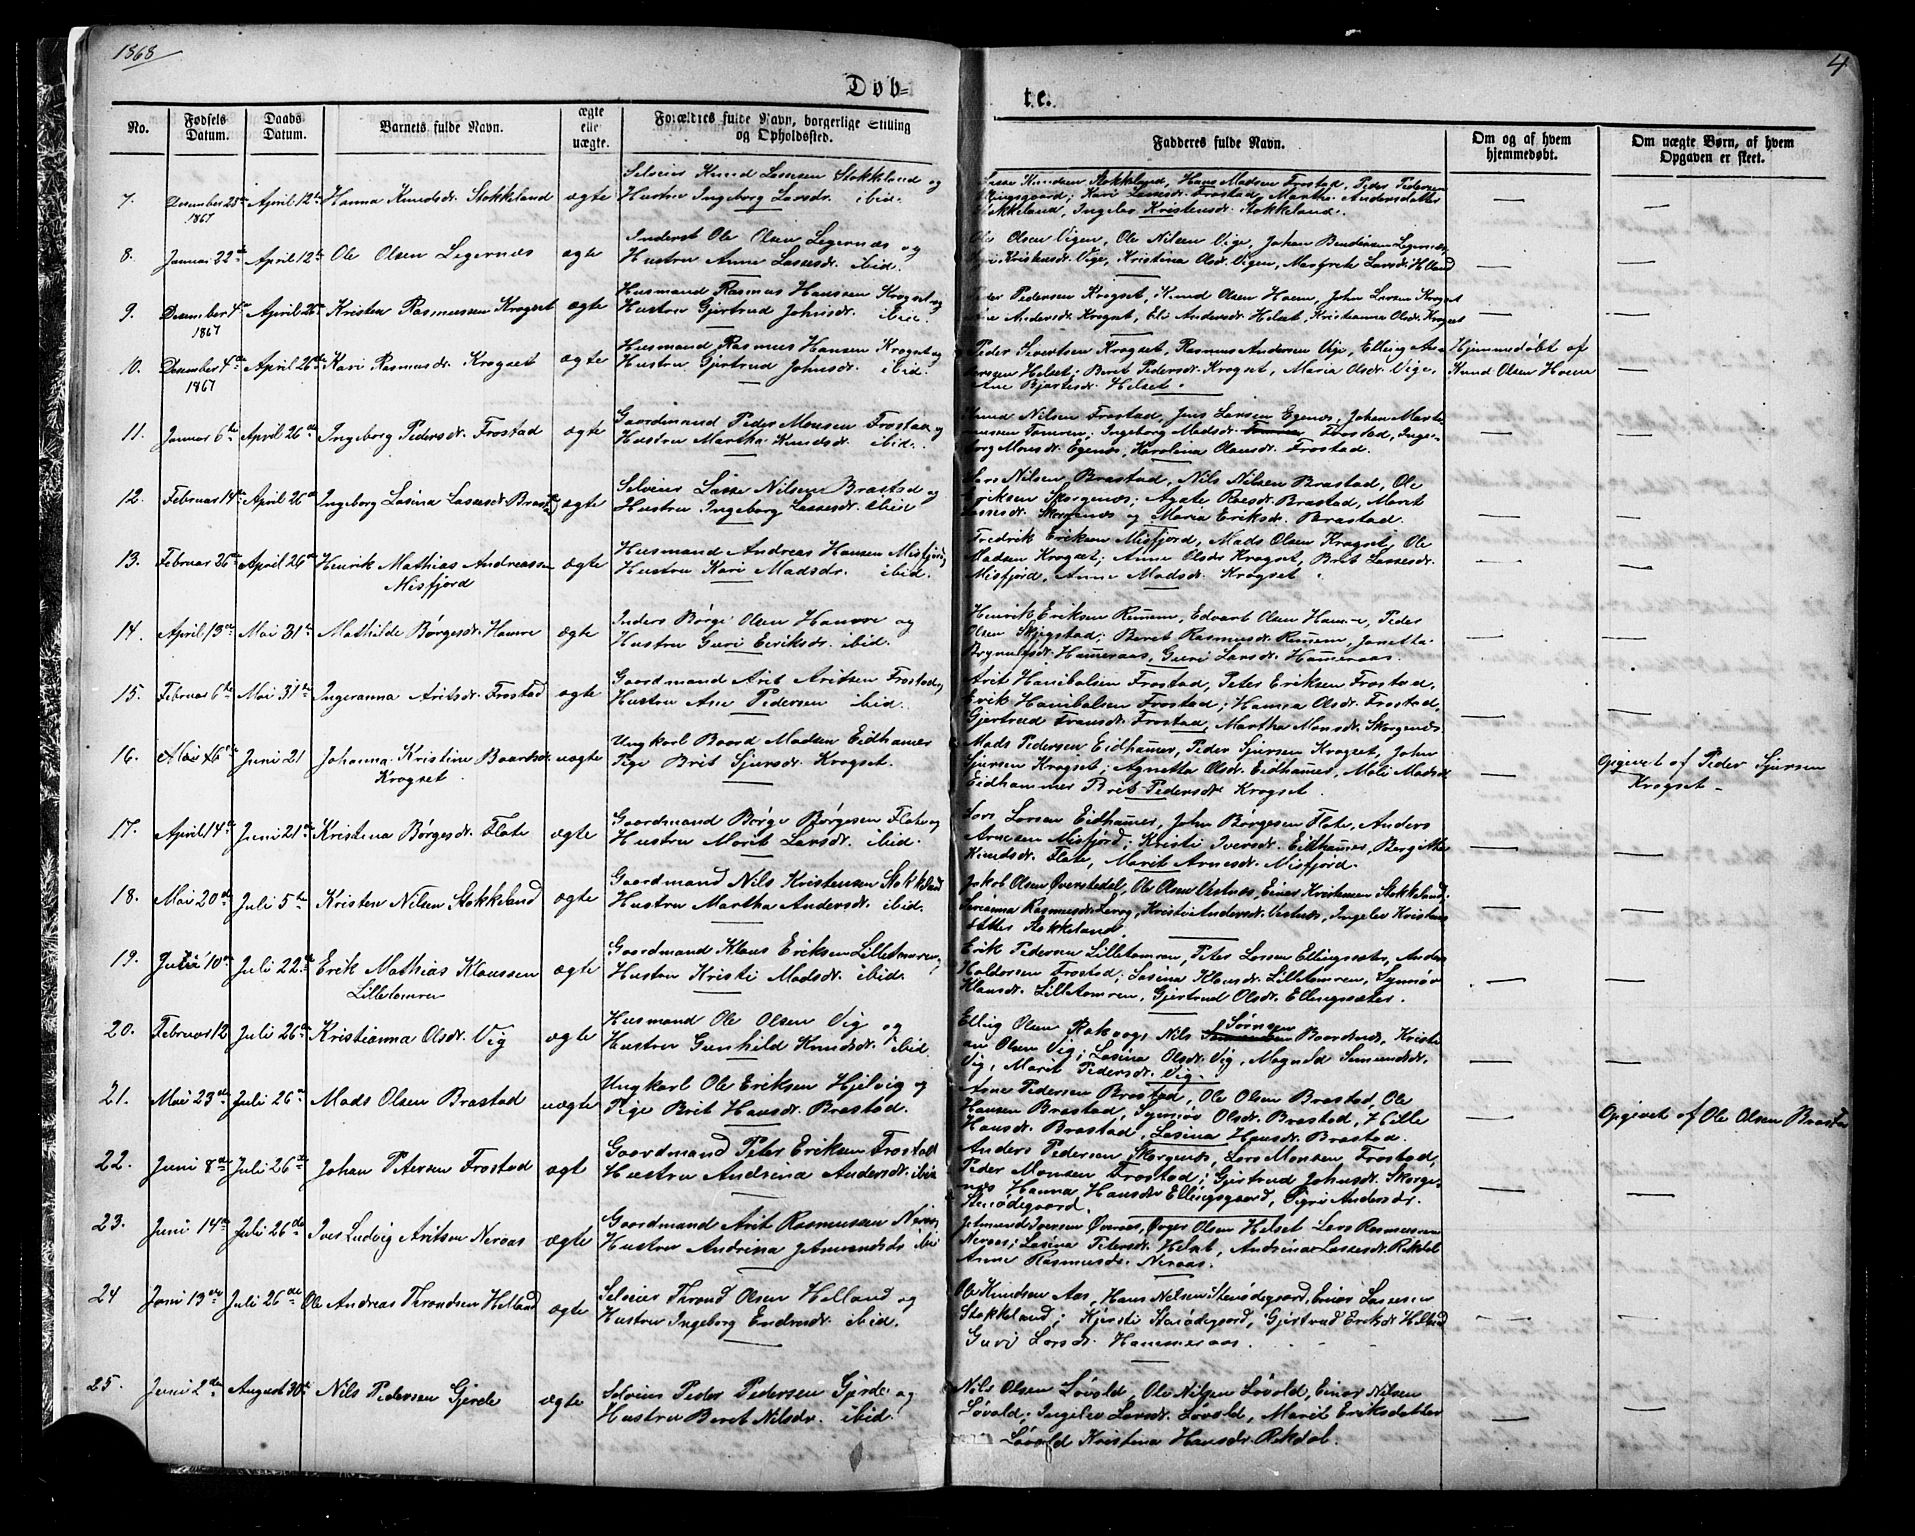 1868
4
Døb=
te.
No.
Fødsels Datum.
Daabs Datum.
Barnets fulde Navn.
ægte elle uægte.
Forældres fulde Navn, borgerlige Stilling og Opholdssted.
Fadderes fulde Navn.
Om og af hvem hjemmedøbt.
Om uægte Børn, af hvem Opgaven er skeet.
7. December 28de 1867 April 12te Hanna Knudsdr. Stokkeland ægte
Selveier Knud Lassesen Stokkeland og
Hustru Ingeborg Larsdr. ibid.
Lasse Knudsen Stokkeland, Hans Madsen Frostad, Peder Pedersen
Ellingsgaard; Kari Lassesdr. Frostad, Martha Andersdatter
Stokkeland, Ingelev Kristensdr. Stokkeland.
8. Januar 22de April 12te Ole Olsen Legernes ægte
Inderst Ole Olsen Legernes og
Hustru Anne Lassesdr. ibid.
Ole Olsen Vigen, Ole Nilsen Vige, Johan Bendiksen Legernes,
Kristensdr. Vige, Kristina Olsdr. Vigen, Margrete Larsdr. Helland
9. December 4de 1867 April 26de Kristen Rasmussen Krogset ægte
Husmand Rasmus Hanssen Krogset og
Hustru Gjertrud Johnsdr. ibid.
Peder Pedersen Krogset, Knud Olsen Hoem, John Larsen Krogset
Andersdr. Krogset, Eli Andersdr. Helset, Kristianna Olsdr. Krogset
10. December 4de 1867 April 26de Kari Rasmusdr. Krogset ægte
Husmand Rasmus Hansen Krogset og
Hustru Gjertrud Johnsdr. ibid.
Peder Sivertsen Krogset, Rasmus Andersen Vige, Elling An-
dersen Helset; Berit Pedersdr. Krogset, Maria Olsdr. Vige,
Ane Bjørtesdr. Helset.
Hjemmedøbt af
Knud Olsen Hoem
11. Januar 6te April 26de Ingeborg Pedersdr. Frostad ægte
Gaardmand Peder Monsen Frostad og
Hustru Martha Knudsdr. ibid.
Knud Nilsen Frostad, Jens Larsen Egenes, Johan Mart-
inussen Tomren, Ingeborg Madsdr. Frostad, Inge-
borg Monsdr. Egenes, Karolina Olausdr. Frostad.
12. Februar 14de April 26de Ingeborg Lasina Lassesdr. Brastad ægte
Selveier Lasse Nilsen Brastad og
Hustru Ingeborg Lassesdr. ibid
Lars Nilsen Brastad, Nils Nilsen Brastad, Ole
Eriksen Skorgenes; Agate Roesdr. Brastad, Marit
Lassesdr. Skorgenes og Maria Eriksdr. Brastad.
13. Februar 26de April 26de Henrik Mathias Andreassen
Misfjord ægte
Husmand Andreas Hansen Misfjord
Hustru Kari Madsdr. ibid.
Fredrik Eriksen Misfjord, Mads Olsen Krogset, Ole
Madsen Krogset; Anne Olsdr. Krogset, Brit Lassesdr.
Misfjord, Anne Madsdr. Krogset.
14. April 13de Mai 31te Mathilde Børgesdr. Hamre ægte
Inders Børge Olsen Hamre og
Hustru Guri Eriksdr. ibid.
Henrik Eriksen Remem, Edvart Olsen Hamre, Peder
Olsen Skjegstad; Beret Rasmusdr. Remem, Janetta
Brynulfsdr. Hameraas, Guri Larsdr. Hameraas.
15. Februar 6te Mai 31te Ingeranna Aritsdr. Frostad ægte
Gaardmand Arit Aritsen Frostad og
Hustru Ane Pedersen ibid.
Arit Hanibalsen Frostad, Peter Eriksen Frostad,
Erik Hanibalsen Frostad; Hanna Olsdr. Frostad,
Gjertrud Fransdr. Frostad, Martha Monsdr. Skorgenes.
16. Mai 16de Juni 21 Johanna Kristine Baardsdr.
Krogset uægte
Ungkarl Baard Madsen Eidhamer
Pige Brit Sjursdr. Krogset.
Mads Pedersen Eidhamer, Peder Sjursen Krogset, John
Sjursen Krogset; Agnetta Olsdr. Eidhamer, Mali Madsdr.
Eidhammer Brit Pedersdr. Krogset.
Opgivet af Peder Sjursen
Krogset
17. April 14de Juni 21de Kristina Børgesdr. Flate ægte
Gaardmand Børge Børgesen Flate og
Hustru Marit Larsdr. ibid.
Lars Larsen Eidhamer, John Børgesen Flate, Anders
Arnesen Misfjord; Kristi Iversdr. Eidhamer, Bergitte
Knudsdr. Flate, Marit Arnesdr. Misfjord.
18. Mai 20de Juli 5te Kristen Nilsen Stokkeland ægte
Gaardmand Nils Kristensen Stokkeland
Hustru Martha Andersdr. ibid.
Jakob Olsen Øverstedal, Ole Olsen Vestnes, Einar Kristensen Stokkeland
Rasmusdr. Lerog, Kristi Andersdr. Vestnes, Ingelev Kristens-
datter Stokkeland.
19. Juli 10de Juli 22de Erik Mathias Klaussen
Lilletomren ægte
Gaardmand Klaus Eriksen Lilletomren
Hustru Kristi Madsdr. ibid.
Erik Pedersen Lilletomren, Peter Larsen Ellingsæter, Anders
Haldorsen Frostad; Lasina Klausdr. Lilletomren, Synnøv
Klausdr. Lilletomren, Gjertrud Olsdr. Ellingsæter.
20. Februar 12 Juli 26de Kristianna Olsdr. Vig ægte
Husmand Ole Olsen Vig og
Hustru Gunhild Knudsdr. ibid.
Elling Olsen Rakvog, Nils Sørnsen Baardsnes, Kristi-
an Olsen Vig; Lasina Olsdr. Vig, Magnild Semundsdr.
Vig, Marit Pedersdr. Vig.
21. Mai 23de Juli 26de Mads Olsen Brastad uægte
Ungkarl Ole Eriksen Hjelvig og
Pige Brit Hansdr. Brastad.
Arne Pedersen Brastad, Ole Olsen Brastad, Ole
Hansen Brastad, Synnøv Olsdr. Brastad, Hille
Hansdr. Brastad, Lasina Hansdr. Brastad.
Opgivet af Ole Olsen Brastad
22. Juni 8de Juli 26de Johan Petersen Frostad ægt
Gaardmand Peter Eriksen Frostad
Hustru Andrina Andersdr. ibid
Anders Pedersen Skorgenes, Lars Monsen Frostad,
Peder Monsen Frostad; Gjertrud Johnsdr. Skorge-
nes, Hanna Hansdr. Ellingsgaard, Sigri Andersdr.
Stenødegaard.
23. Juni 14de Juli 26de Iver Ludvig Aritsen Neraas ægte
Gaardmand Arit Rasmussen Neraas
Hustru Andrina Jetmundsdr. ibi
Jetmund Iversen Øveraas, Ørger Olsen Helset Lars Rasmussen
Neraas; Lasina Petersdr. Helset, Andrina Lassesdr. Rekdal
Anne Rasmusdr. Neraas.
24 Juni 13de Juli 26de Ole Andreas Throndsen Helland ægte
Selveier Thrond Olsen Helland og
Hustru Ingeborg Endresdr. ibid.
Ole Knudsen Aas, Hans Nilsen Stenødegaard, Einar Lassesen
Stokkeland; Kjersti Stenødegaard, Gjertrud Eriksdr. Helland
Guri Larsdr. Hammeraas.
25. Juni 2de August 30te Nils Pedersen Gjerde ægte
Selveier Peder Pedersen Gjerde og
Hustru Beret Nilsdr. ibid.
Nils Olsen Løvold, Ole Nilsen Løvold, Einar Nilsen
Løvold; Ingelev Larsdr. Løvold, Marit Eriksdatter
Løvold Kristina Hansdr. Rekdal.